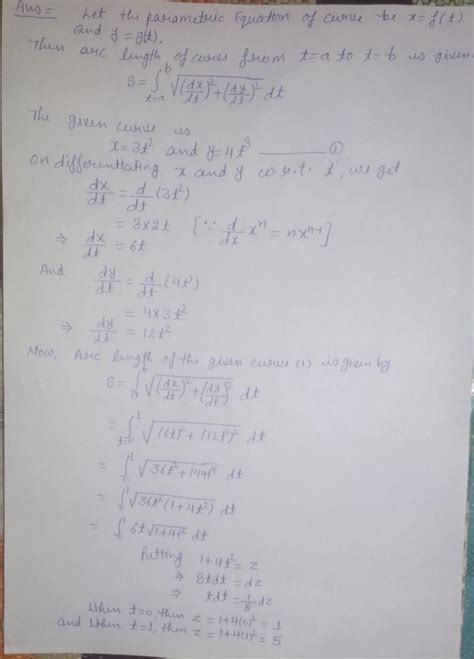 Ans = Let the parametric Equation of curve be x = f(t)
and y = g(t).
Then arc length of curve from t=a to t=b is given
S = ∫_{t=a}^{b} √((dx/dt)² + (dy/dt)²) dt
The given curve is
x = 3t² and y = 4t³ ——— ①
On differentiating x and y w.r.t. t, we get
dx/dt = d/dt (3t²)
= 3×2t [∵ d/dx xⁿ = nxⁿ⁻¹]
⇒ dx/dt = 6t
And dy/dt = d/dt (4t³)
= 4×3t²
⇒ dy/dt = 12t²
Now, Arc length of the given curve (1) is given by
S = ∫ √((dx/dt)² + (dy/dt)²) dt
= ∫_{t=0}^{1} √((6t)² + (12t²)²) dt
= ∫_0^1 √(36t² + 144t⁴) dt
= ∫_0^1 √(36t²(1+4t²)) dt
= ∫_0^1 6t √(1+4t²) dt
Putting 1+4t² = z
⇒ 8tdt = dz
⇒ tdt = 1/8 dz
When t=0, then z = 1+4(0)² = 1
and When t=1, then z = 1+4(1)² = 5